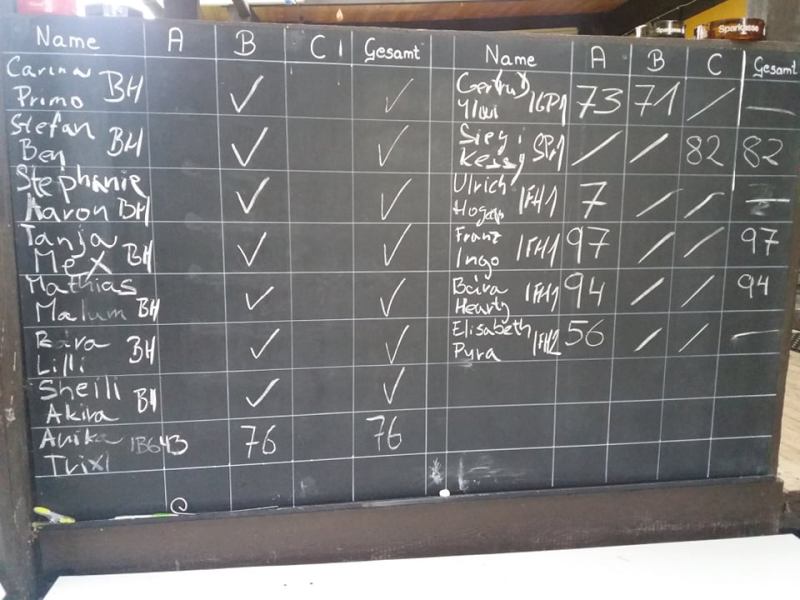 Sparkasse Sparkasse
Name A B C Gesamt
Carina
Primo BH ✓ ✓
Stefan
Ben BH ✓ ✓
Stephanie
Aaron BH ✓ ✓
Tanja
Mex BH ✓ ✓
Mathias
Malum BH ✓ ✓
Bára
Lilli BH ✓ ✓
Sheili
Akira BH ✓ ✓
Anika
Trixi 76 76
Name A B C Gesamt
Gertrud
IGP1 73 71 / —
Siegi
Kessy SPr1 / / 82 82
Ulrich
Hogan IFH1 7 / / —
Franz
Ingo IFH1 97 / / 97
Bára
Hearty IFH1 94 / / 94
Elisabeth
Pyra IFH2 56 / / —